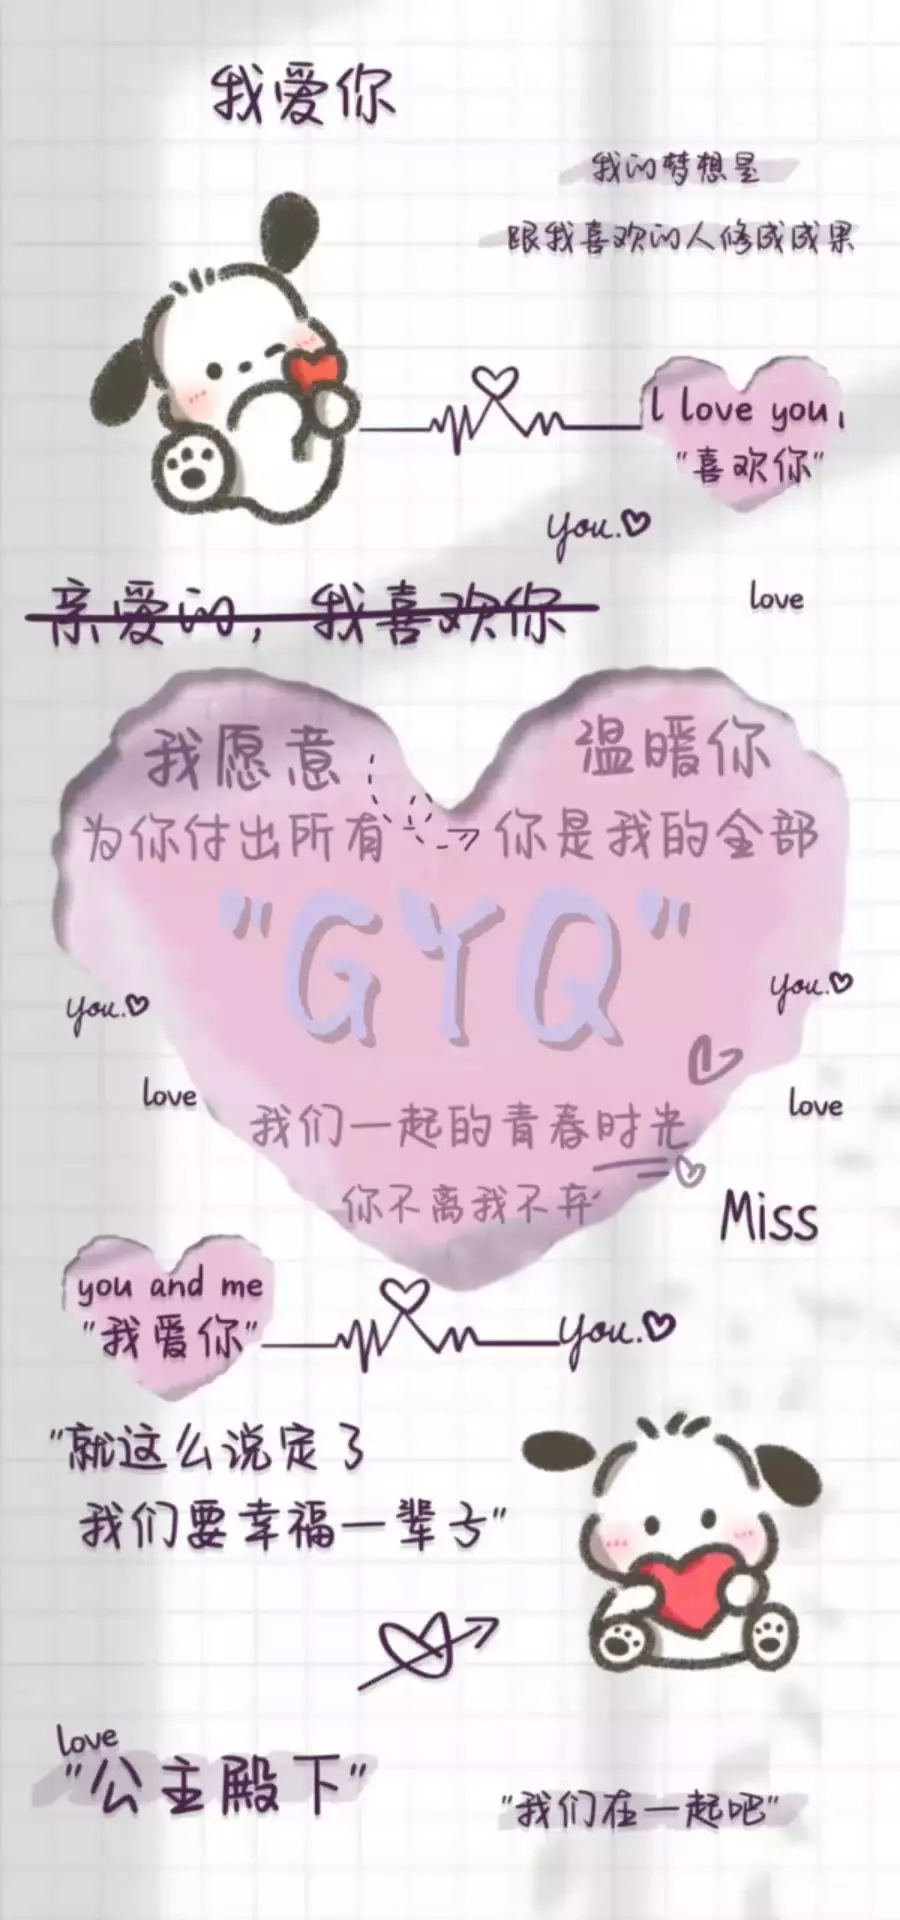 我爱你
我的梦想是
跟我喜欢的人修成成果
l love you,
"喜欢你"
you.
love
亲爱的，我喜欢你
我愿意 温暖你
为你付出所有 你是我的全部
"GYQ"
you. you.
love love
我们一起的青春时光
你不离我不弃
Miss
you and me
"我爱你" you.
"就这么说定了
我们要幸福一辈子"
love
"公主殿下"
"我们在一起吧"